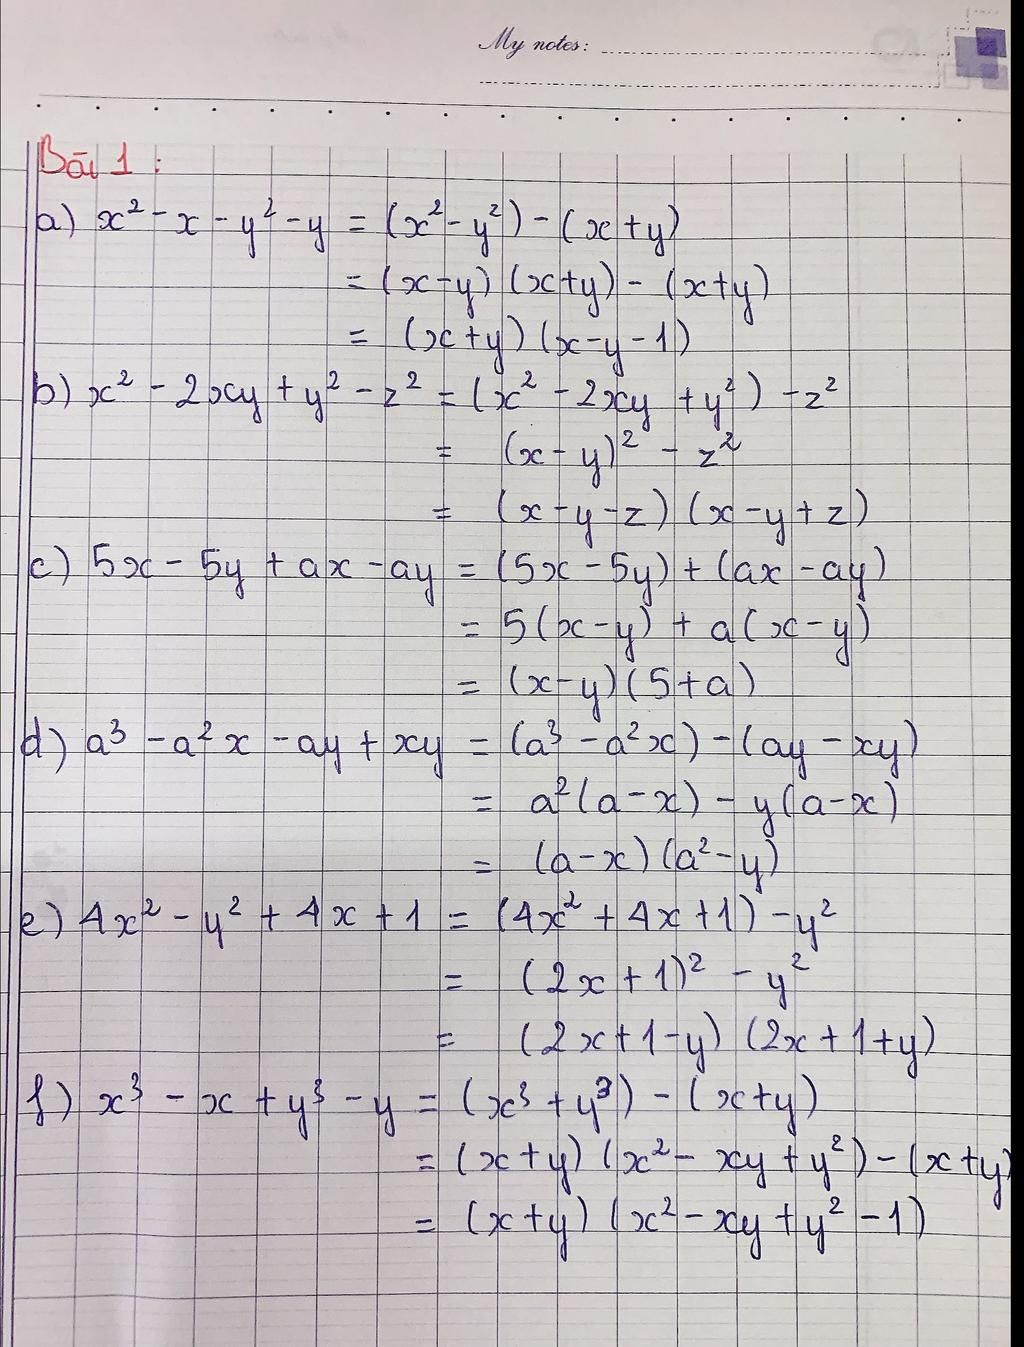 My notes:
Bài 1 :
a) x² - x - y² - y = (x² - y²) - (x + y)
= (x - y) (x + y) - (x + y)
= (x + y) (x - y - 1)
b) x² - 2xy + y² - z² = (x² - 2xy + y²) - z²
= (x - y)² - z²
= (x - y - z) (x - y + z)
c) 5x - 5y + ax - ay = (5x - 5y) + (ax - ay)
= 5(x - y) + a(x - y)
= (x - y) (5 + a)
d) a³ - a²x - ay + xy = (a³ - a²x) - (ay - xy)
= a²(a - x) - y(a - x)
= (a - x) (a² - y)
e) 4x² - y² + 4x + 1 = (4x² + 4x + 1) - y²
= (2x + 1)² - y²
= (2x + 1 - y) (2x + 1 + y)
f) x³ - x + y³ - y = (x³ + y³) - (x + y)
= (x + y) (x² - xy + y²) - (x + y)
= (x + y) (x² - xy + y² - 1)